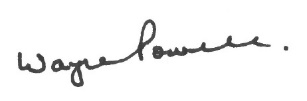 Wayne Powell.